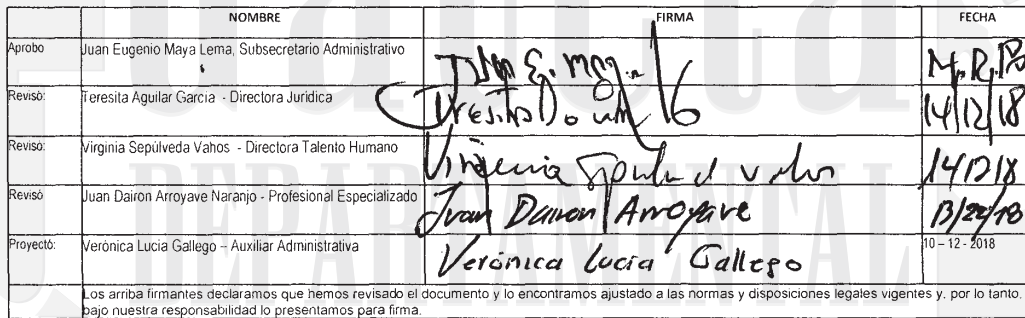 NOMBRE FIRMA FECHA
Aprobo Juan Eugenio Maya Lema, Subsecretario Administrativo
Revisó: Teresita Aguilar García - Directora Jurídica 14/12/18
Revisó: Virginia Sepúlveda Vahos - Directora Talento Humano Virginia 14/12/18
Revisó Juan Dairon Arroyave Naranjo - Profesional Especializado Juan Dairon Arroyave
Proyectó: Verónica Lucia Gallego – Auxiliar Administrativa Verónica Lucía Gallego 10 – 12 - 2018
Los arriba firmantes declaramos que hemos revisado el documento y lo encontramos ajustado a las normas y disposiciones legales vigentes y, por lo tanto,
bajo nuestra responsabilidad lo presentamos para firma.
DEPARTAMENTAL